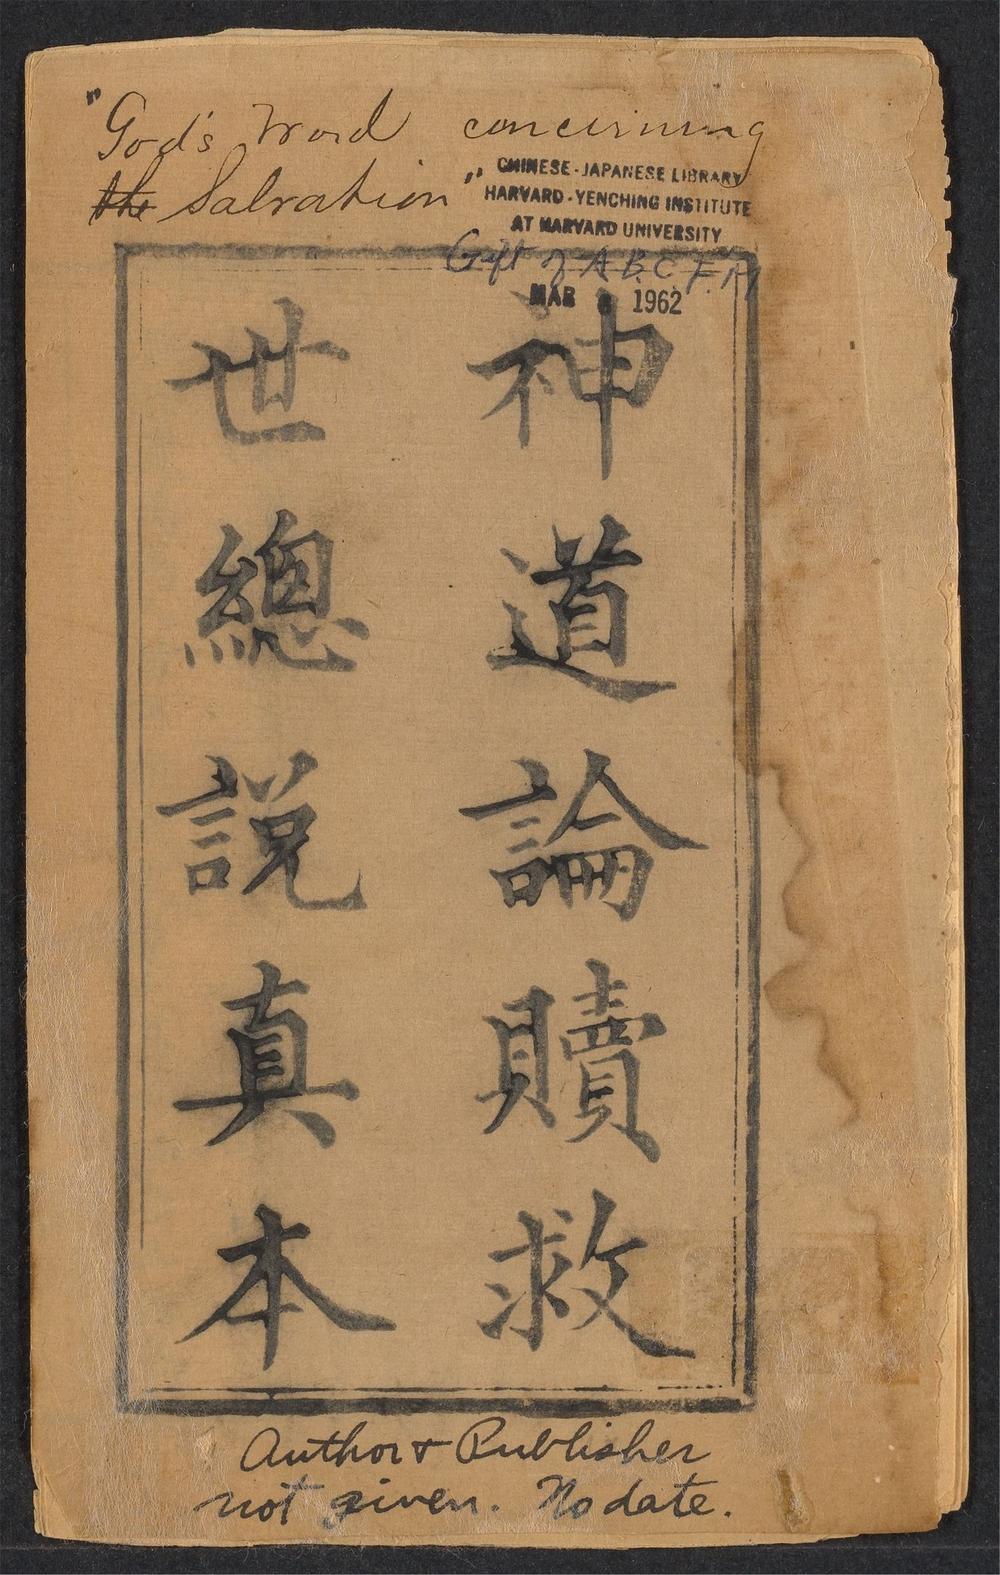 "God's Word concerning
the Salvation"
CHINESE-JAPANESE LIBRARY
HARVARD-YENCHING INSTITUTE
AT HARVARD UNIVERSITY
Gift of A.B.C.F.M
MAR 1962
神道論贖救
世總說真本
Author & Publisher
not given. No date.